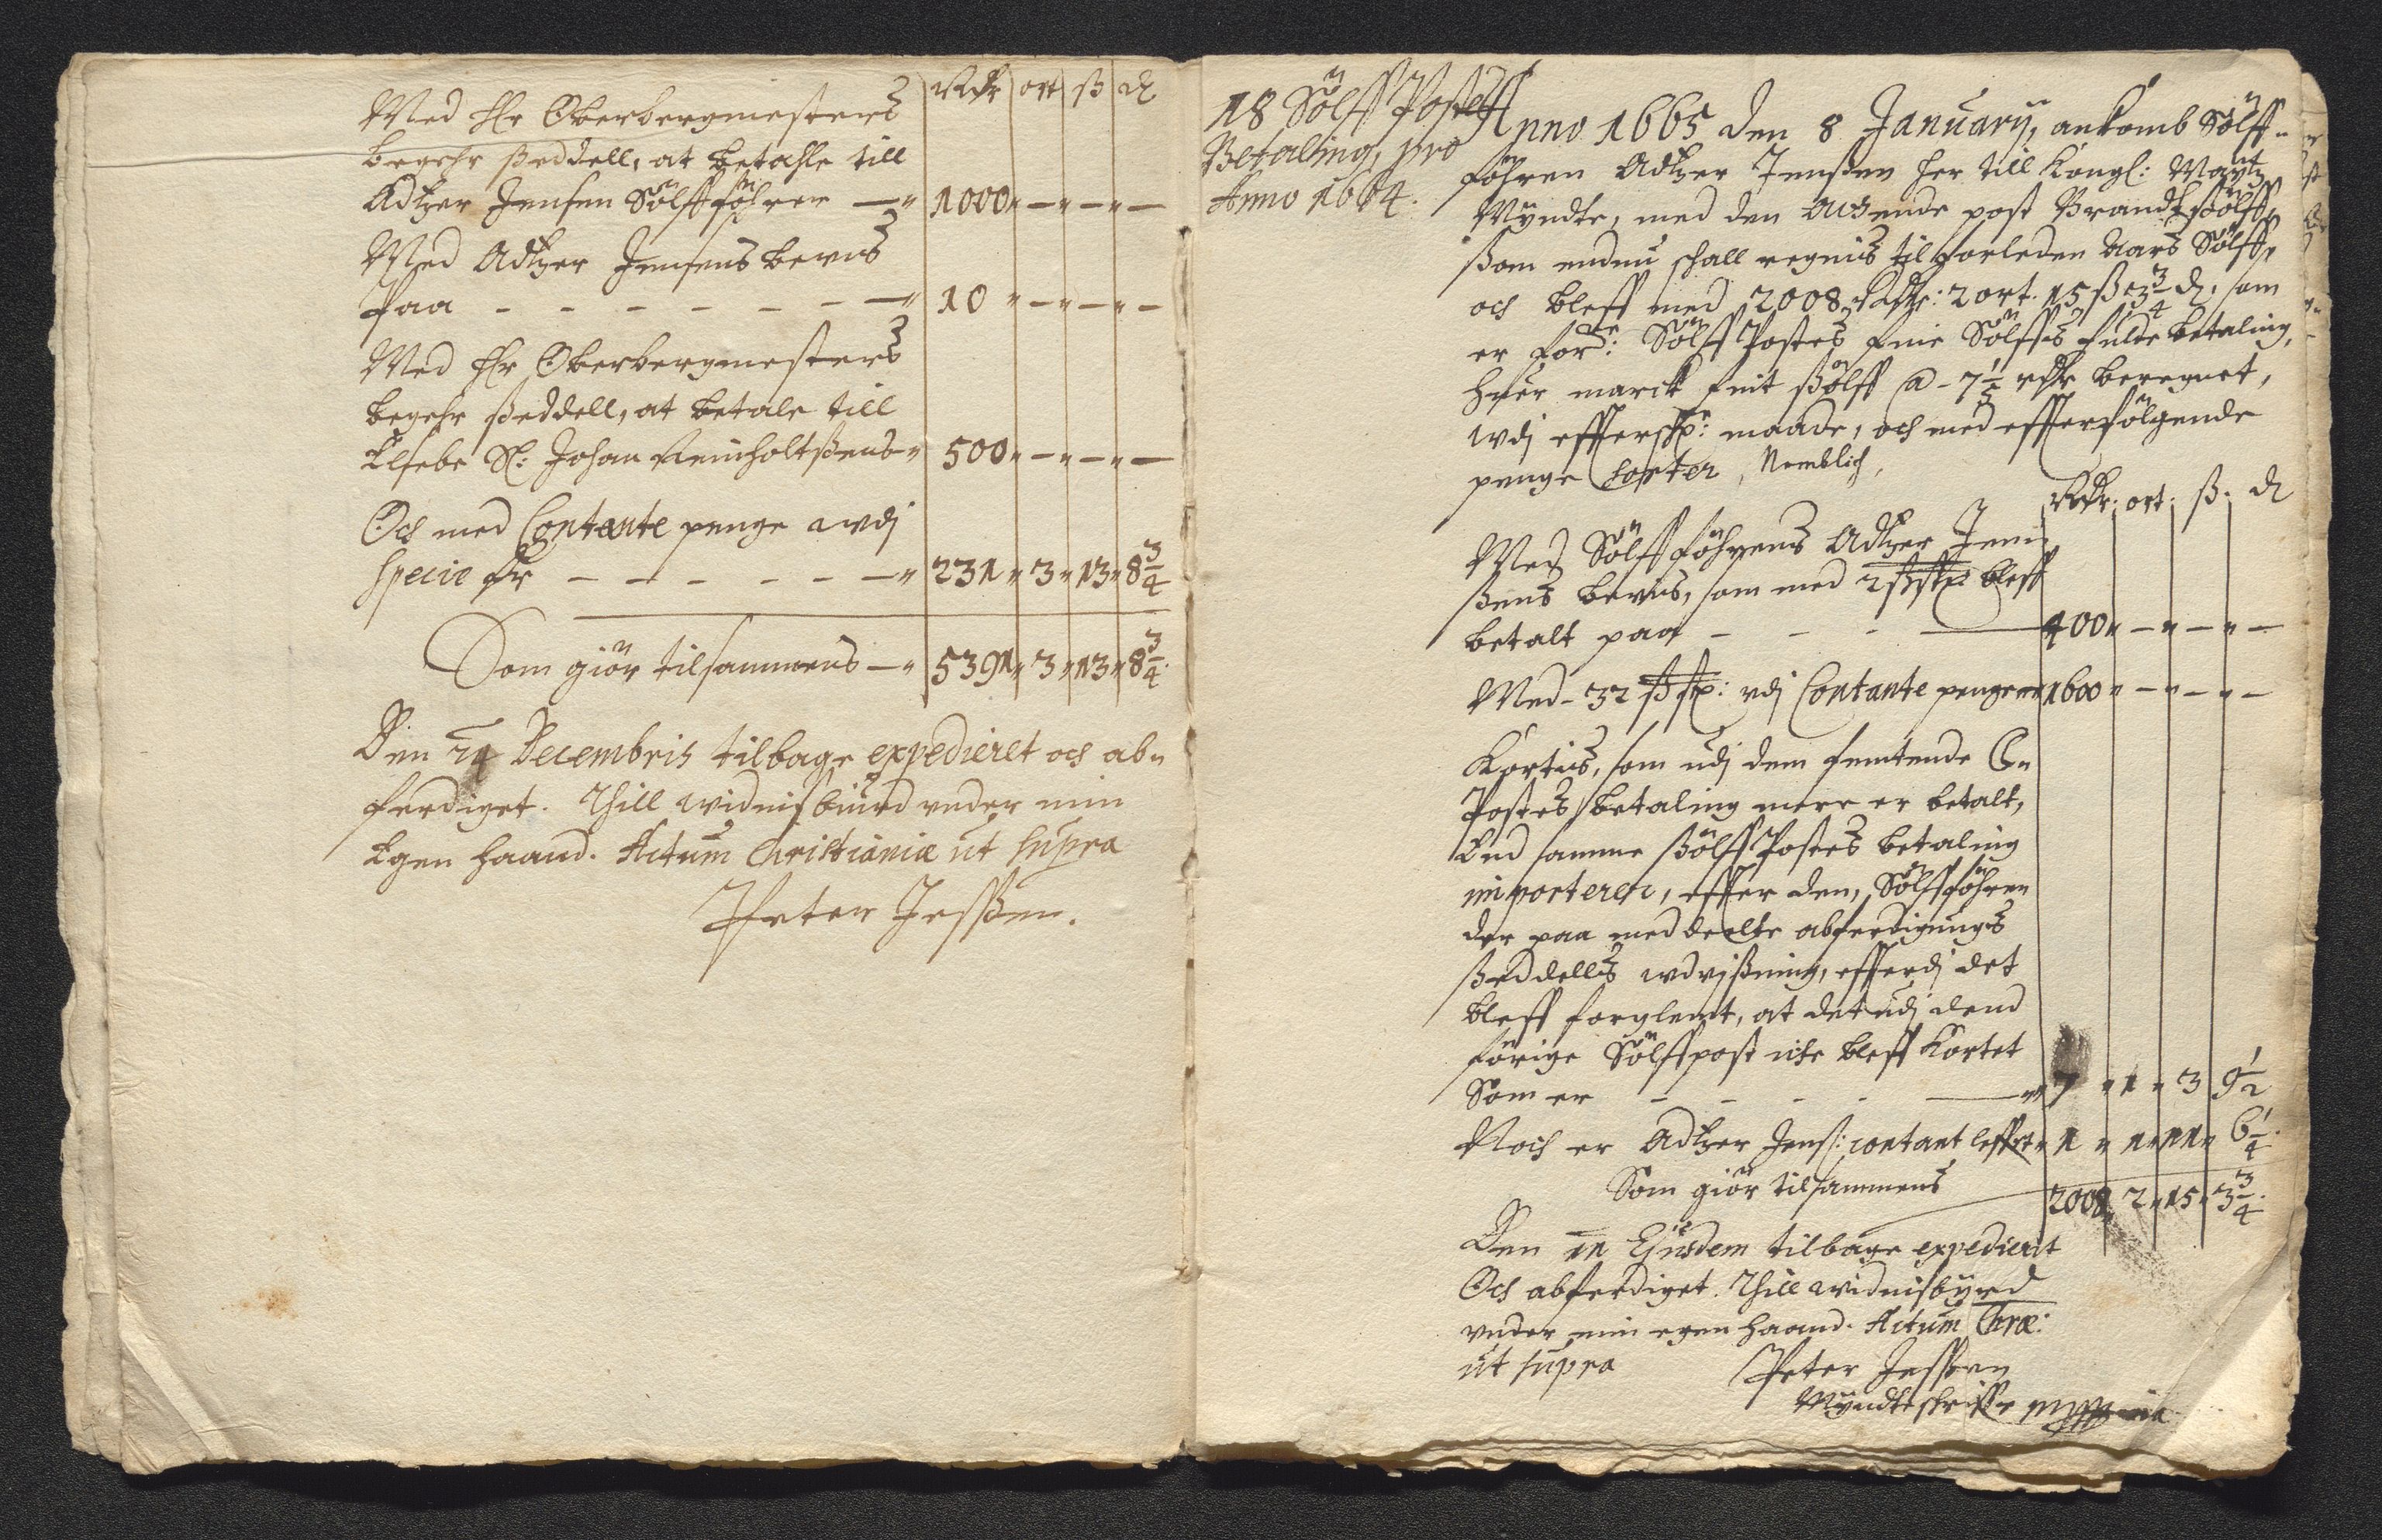 Rdr ort ß d
Med Hr Oberbergmesters
begehr ßeddell, at betahle till
Adtzer Jensen Sölffföhrer — 1000 „ — „ — „ —
Med Adtzer Jensens bevis
paa - - - - - - — 10 „ — „ — „ —
Med Hr Oberbergmesters
begehr ßeddell, at betale till
Elsebe Sl: Johan Reinholtßens 500 „ — „ — „ —
Och med Contante penge udj
specie Rdr - - - - - — 231 „ 3 „ 13 „ 8 3/4
Som giör tilsammens — 5391 „ 3 „ 13 „ 8 3/4
Den 24 Decembris tilbage expedieret och ab„
ferdiget. Thill widnisbiurd under min
Egen haand. Actum Christianiæ ut supra
Peter Jeßen.
18 Sölff Postes
Betaling, pro
Anno 1664.
Anno 1665 den 8 January, ankomb Sölff„
föhren Adtzer Jenßen her till Kongl: Maytz
Myndte, med den post Brandtßölff,
ßom endnu schall regnis til forleden Aars Sölff,
och bleff med 2008 Rdr: 2 ort. 15 ß 3 3/4 d, som
er for: Sölff Postes fine Sölffs fulde betaling,
huer marck fint ßölff a - 7 1/2 rdr beregnet,
udj effterschr: maade, och med effterfölgende
penge sorter, Nemblich,
Rdr: ort: ß: d
Med Sölffföhrens Adtzer Jen„
ßens bevis, som med 2 bleff
betalt paa - - - — 400 „ — „ — „ —
Med - 32 udj Contante penger 1600 „ — „ — „ —
Kortis, som udj dem femtende
Postes betaling mere er betalt,
End samme ßölff Postes betaling
importerer, effter den, Sölffföhren
der paa meddeelte abferdigungs
ßeddells udvißning, efterdj det
bleff forglemt, at det udj dend
förige Sölffpost iche bleff kortet
Som er - - - - — 7 „ 1 „ 3 9 1/2
Noch er Adtzer Jenß: contant leffret 1 „ 1 „ 11 „ 6 1/4
Som giör tilsammens 2008 „ 2 „ 15 „ 3 3/4
Den 11 Ejusdem tilbage expedierit
Och abferdiget. Thill widnisbyrd
under min egen haand. Actum Chræ:
ut supra
Peter Jeßen
Myndteschriffr mppria